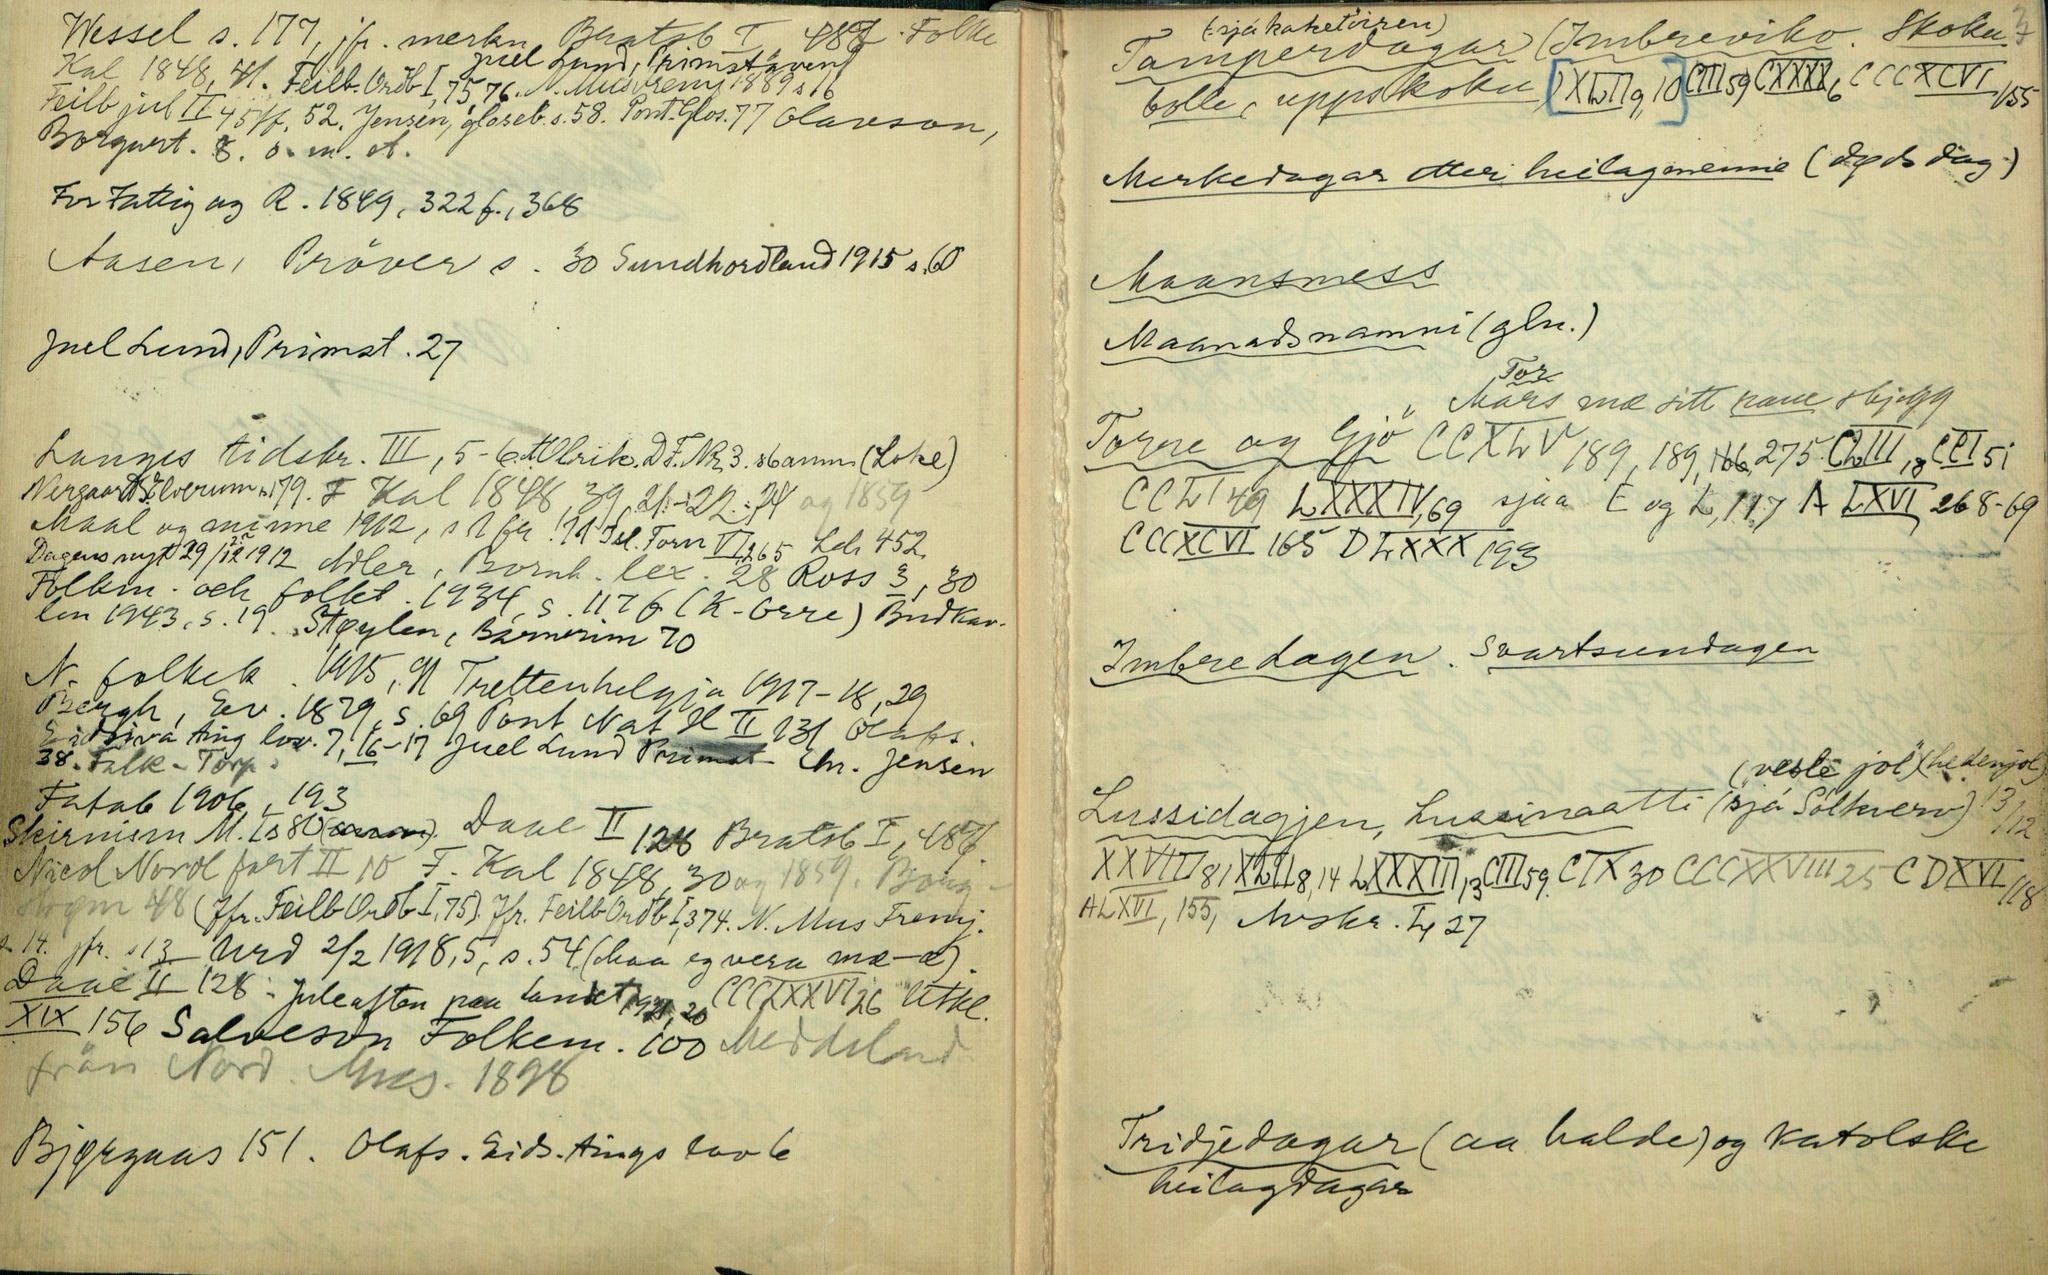 Wessel s. 177, jfr. merkn. Bratsb I 487. Folke
Juel Lund, Primstaven
Kal 1848, 41. Feilb. Ordb I, 75, 76. N. Mus 1889 s 16
Feilb jul II 45ff, 52. Jensen, gloseb. s. 58. Pont. Glos. 77 Olavson,
Borgaret. s. o. m. a.
For Fattig og R. 1849, 322f., 368
Aasen, Pröver s. 30 Sundhordland 1915 s. 60
Juel Lund, Primst. 27
Langes tidskr. III, 5-6. Ulrik. D.F. Nr 3. (Loke)
Nergaard, Elverum s. 179. F Kal 1848, 39, 21-22-74 og 1859
Maal og minne 1912, s Isl. Forn VI, 265 Lch 452.
Dagens nyt 29/12 1912 Adler, Bornh. lex. 28 Ross 3, 30
Folkm. och folket. 1934, s. 117 f (K-Orre) Budkav-
len 1943, s. 19. Støylen, Barnerim 70
N. folkek. 1915, 91 Trettenhelgja 1917-18, 29
Bergh, Ev. 1879, s. 69 Pont Nat H II 131 Olafs.
Eidsiva ting lov. 7, 16-17 Juel Lund Primst Chr. Jensen
38. Falk-Torp.
Fatab 1906, 193
Skirnism M. I s 80 Daae II 128 Bratsb I, 487
Nicol Nord fart II 10 F. Kal 1848, 30 og 1859.
48 (Jfr. Feilb Ordb I, 75). Jfr. Feilb Ordb I, 374. N. Mus Fremj.
s. 14. jfr. s 13 Urd 2/2 1918, 5, s. 54 (haa eg vera mæ-æ).
Daae II 128 - Juleaften paa landet 20 CCCLXXVI 26 Utkl.
XIX 156 Salveson Folkem. 100 Meddeland
från Nord. Mus. 1898
Bjørgaas 151. Olafs. Eids. tings lov 6
3
(sjå kaketöiren)
Tamperdagar (Imbreviko. Skoku-
bolle, uppskoku [IXLII 9, 10] CIII 59 CXXXX 6 CCCXCVI 155
Merkedagar etter heilagmenne (døds dag)
Maansmess
Maanadsnamni (gln.)
Tor
Mars mæ sitt rane skjegg
Torre og Gjö CCXLV 189, 189, 166, 275 CLIII, 8 CCI 51
CCLI 49 LXXXIV, 69 sjaa E og L, 117 A LXVI 268-69
CCCXCVI 165 DLXXX 193
Imbredagen. Svartsundagen
(vesle jol) (hedenjol)
Lussidagjen, Lussinaatti (sjá Sólkverv) 13/12
XXVIII 81 XLII 8, 14 LXXXIII, 13 CIII 59. CIX 30 CCCXXVIII 25 CDXVI 118
ALXVI, 155, Avskr. I, 27
Tridjedagar (aa halde) og katolske
heilagdagar